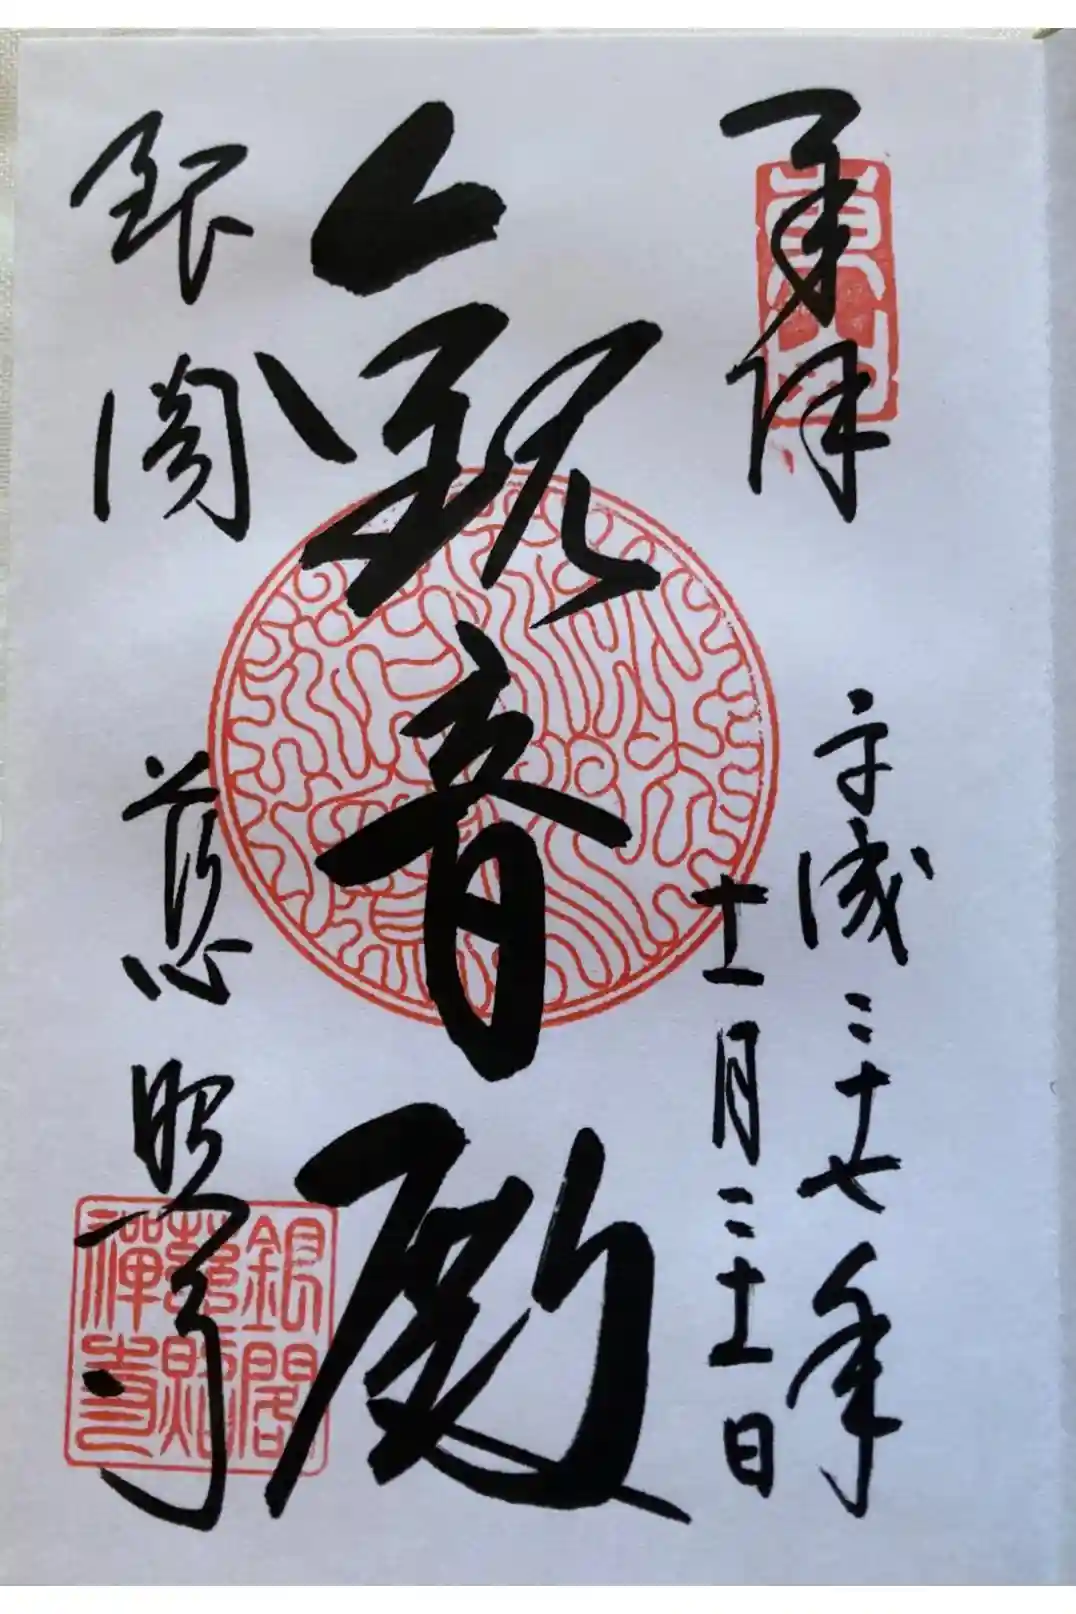 奉拝
東山
平成二十七年
十一月二十一日
観音殿
銀閣 慈照寺
銀閣
慈照
禪寺